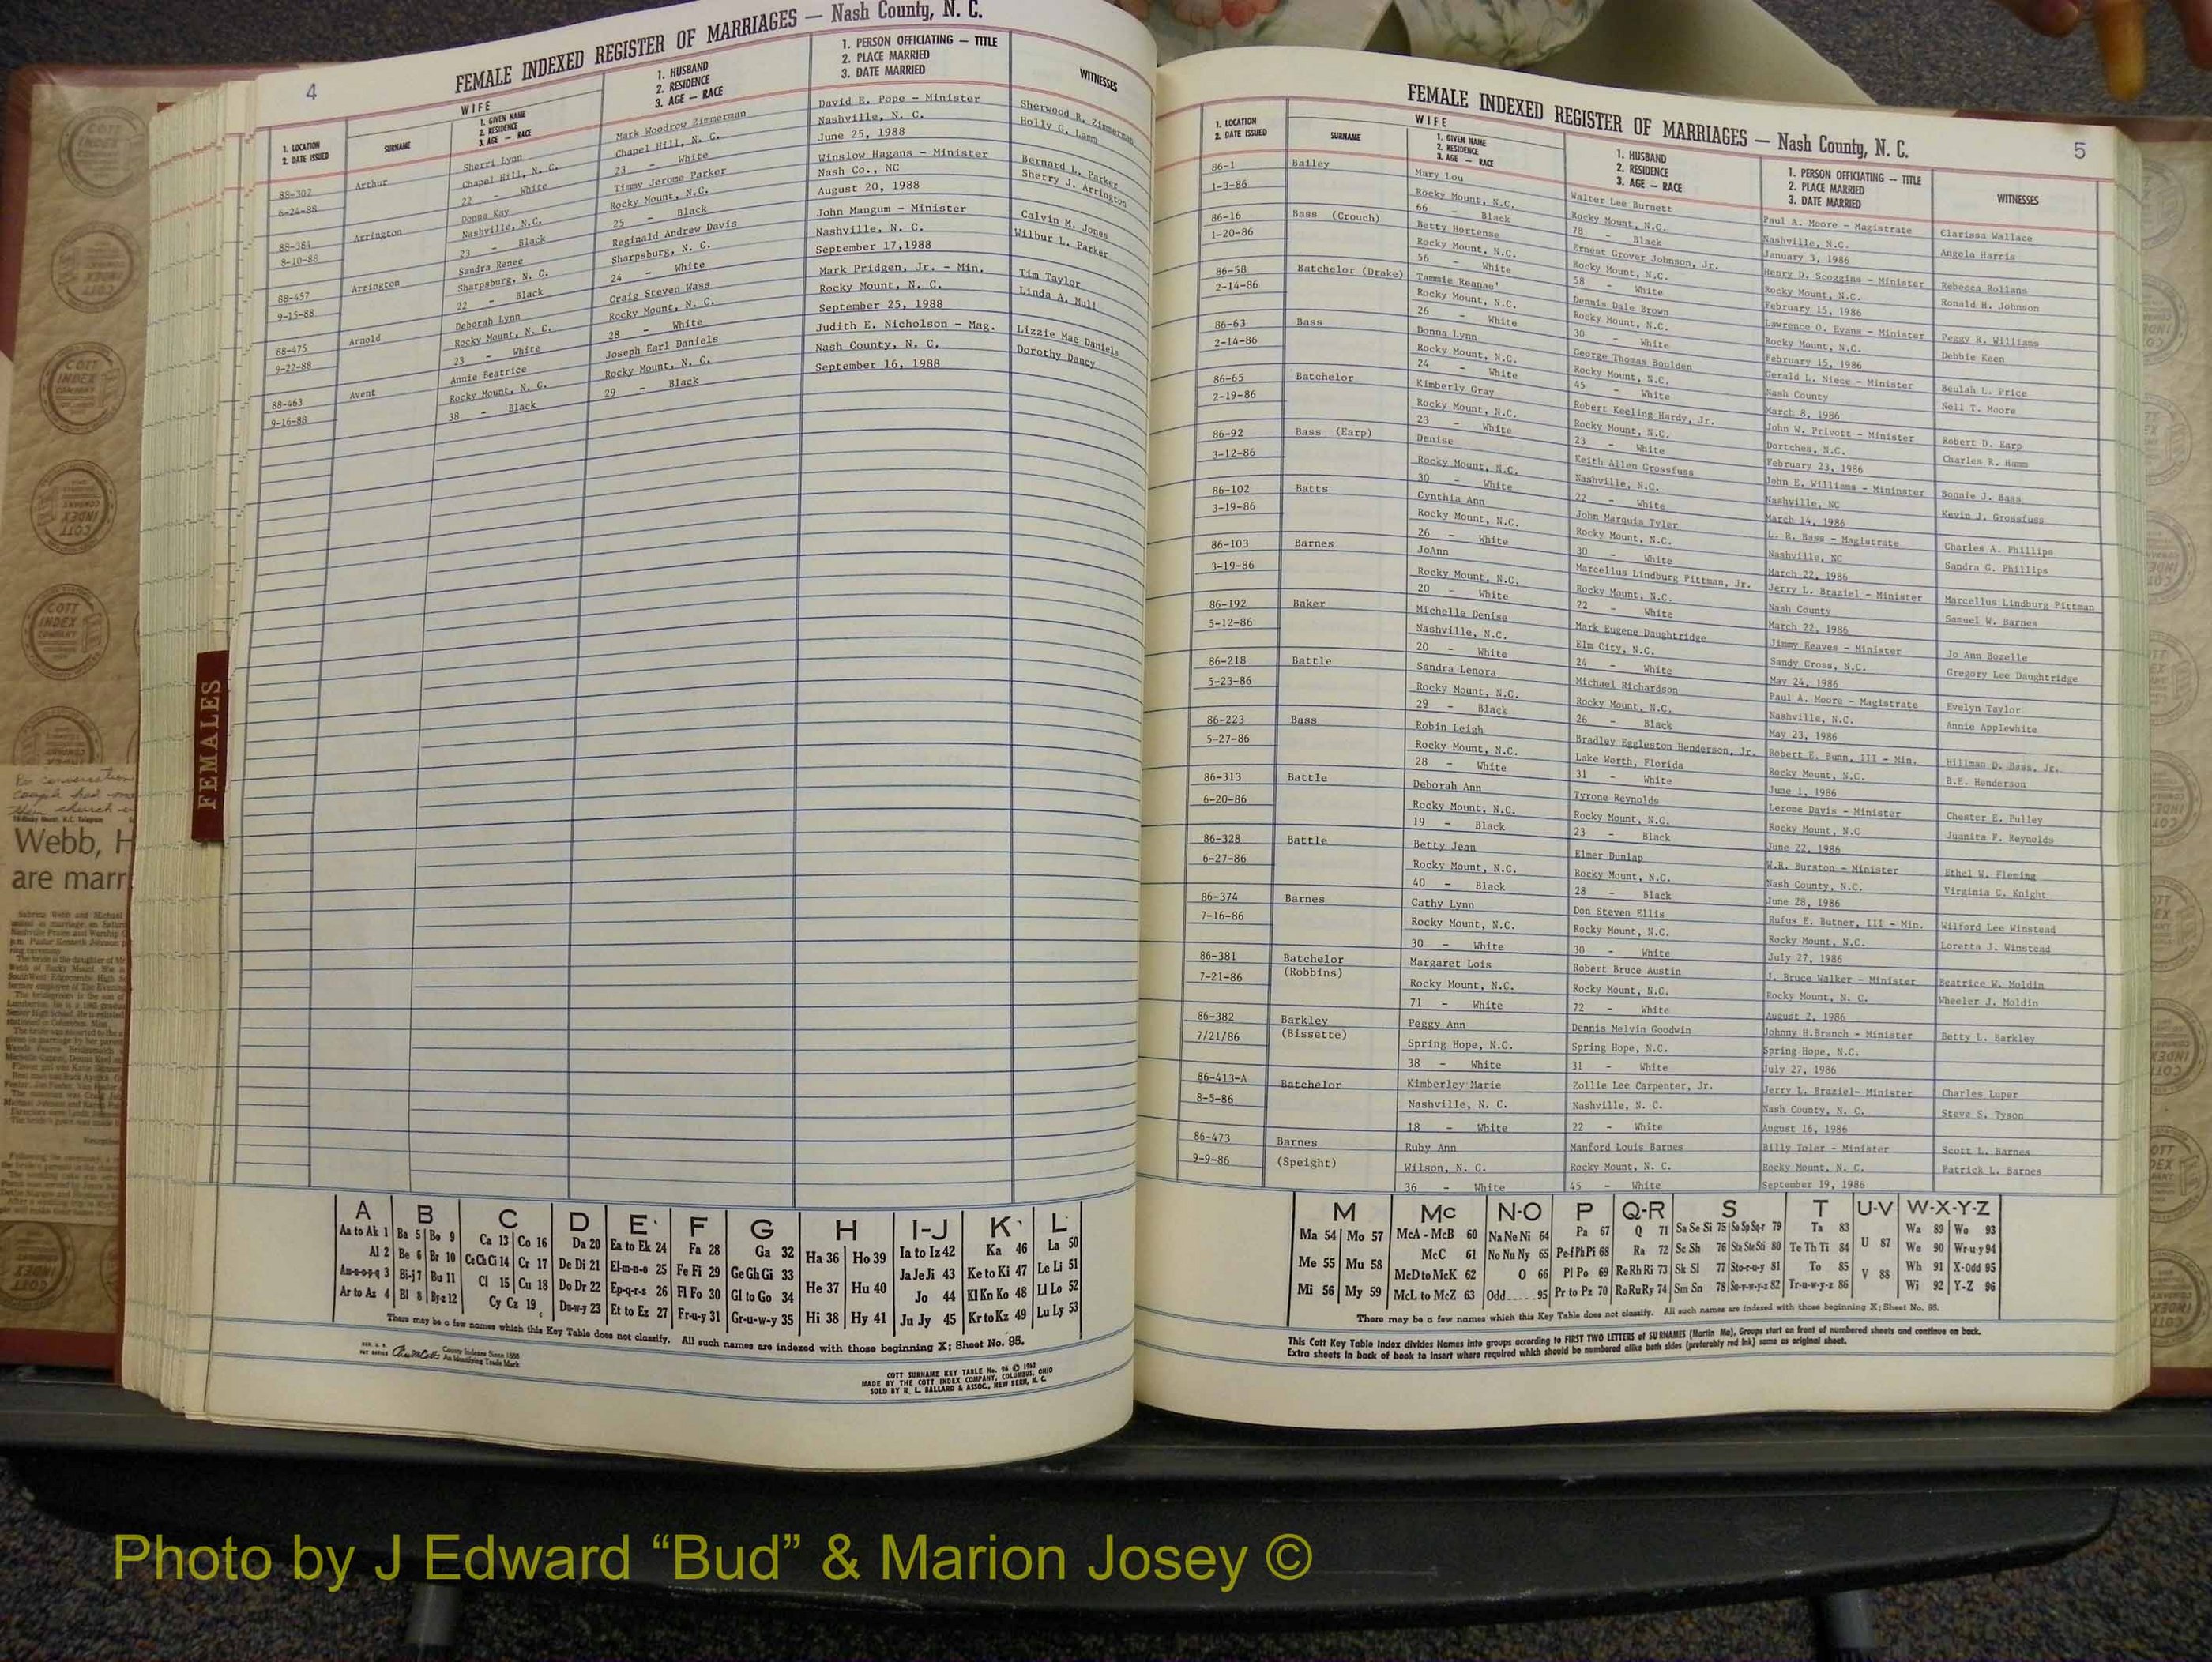 4
FEMALE INDEXED REGISTER OF MARRIAGES — Nash County, N. C.
1. LOCATION
2. DATE ISSUED
SURNAME
WIFE
1. GIVEN NAME
2. RESIDENCE
3. AGE — RACE
1. HUSBAND
2. RESIDENCE
3. AGE — RACE
1. PERSON OFFICIATING — TITLE
2. PLACE MARRIED
3. DATE MARRIED
WITNESSES
88-307 Arthur Sherri Lynn Mark Woodrow Zimmerman David E. Pope - Minister Sherwood R. Zimmerman
6-24-88 Chapel Hill, N. C. Chapel Hill, N. C. Nashville, N. C. Holly G. Lamm
22 - White 23 - White June 25, 1988
88-384 Arrington Donna Kay Timmy Jerome Parker Winslow Hagans - Minister Bernard L. Parker
8-10-88 Nashville, N.C. Rocky Mount, N.C. Nash Co., NC Sherry J. Arrington
23 - Black 25 - Black August 20, 1988
88-457 Arrington Sandra Renee Reginald Andrew Davis John Mangum - Minister Calvin M. Jones
9-15-88 Sharpsburg, N. C. Sharpsburg, N. C. Nashville, N. C. Wilbur L. Parker
22 - Black 24 - White September 17,1988
88-475 Arnold Deborah Lynn Craig Steven Wass Mark Pridgen, Jr. - Min. Tim Taylor
9-22-88 Rocky Mount, N. C. Rocky Mount, N. C. Rocky Mount, N. C. Linda A. Mull
23 - White 28 - White September 25, 1988
88-463 Avent Annie Beatrice Joseph Earl Daniels Judith E. Nicholson - Mag. Lizzie Mae Daniels
9-16-88 Rocky Mount, N. C. Rocky Mount, N. C. Nash County, N. C. Dorothy Dancy
38 - Black 29 - Black September 16, 1988
FEMALES
Webb, H
are marr
A B C D E F G H I-J K L
Aa to Ak 1 Ba 5 Bo 9 Ca 13 Co 16 Da 20 Ea to Ek 24 Fa 28 Ga 32 Ha 36 Ho 39 Ia to Iz 42 Ka 46 La 50
Al 2 Be 6 Br 10 Ce Ch Ci 14 Cr 17 De Di 21 El-m-n-o 25 Fe Fi 29 Ge Gh Gi 33 Ja Je Ji 43 Ke to Ki 47 Le Li 51
Am-n-o-p-q 3 Bi-j 7 Bu 11 Cl 15 Cu 18 Do Dr 22 Ep-q-r-s 26 Fl Fo 30 Gl to Go 34 He 37 Hu 40 Jo 44 Kl Kn Ko 48 Ll Lo 52
Ar to Az 4 Bl 8 By-z 12 Cy Cz 19 Du-w-y 23 Et to Ez 27 Fr-u-y 31 Gr-u-w-y 35 Hi 38 Hy 41 Ju Jy 45 Kr to Kz 49 Lu Ly 53
There may be a few names which this Key Table does not classify. All such names are indexed with those beginning X; Sheet No. 95.
County Indexes Since 1888
An Identifying Trade Mark
COTT SURNAME KEY TABLE No. 96 © 1962
MADE BY THE COTT INDEX COMPANY, COLUMBUS, OHIO
SOLD BY R. L. BALLARD & ASSOC., NEW BERN, N. C.
FEMALE INDEXED REGISTER OF MARRIAGES — Nash County, N. C.
5
1. LOCATION
2. DATE ISSUED
SURNAME
WIFE
1. GIVEN NAME
2. RESIDENCE
3. AGE — RACE
1. HUSBAND
2. RESIDENCE
3. AGE — RACE
1. PERSON OFFICIATING — TITLE
2. PLACE MARRIED
3. DATE MARRIED
WITNESSES
86-1 Bailey Mary Lou Walter Lee Burnett Paul A. Moore - Magistrate Clarissa Wallace
1-3-86 Rocky Mount, N.C. Rocky Mount, N.C. Nashville, N.C. Angela Harris
66 - Black 78 - Black January 3, 1986
86-16 Bass (Crouch) Betty Hortense Ernest Grover Johnson, Jr. Henry D. Scoggins - Minister Rebecca Rollans
1-20-86 Rocky Mount, N.C. Rocky Mount, N.C. Rocky Mount, N.C. Ronald H. Johnson
56 - White 58 - White February 15, 1986
86-58 Batchelor (Drake) Tammie Reanae' Dennis Dale Brown Lawrence O. Evans - Minister Peggy R. Williams
2-14-86 Rocky Mount, N.C. Rocky Mount, N.C. Rocky Mount, N.C. Debbie Keen
26 - White 30 - White February 15, 1986
86-63 Bass Donna Lynn George Thomas Boulden Gerald L. Niece - Minister Beulah L. Price
2-14-86 Rocky Mount, N.C. Rocky Mount, N.C. Nash County Nell T. Moore
24 - White 45 - White March 8, 1986
86-65 Batchelor Kimberly Gray Robert Keeling Hardy, Jr. John W. Privott - Minister Robert D. Earp
2-19-86 Rocky Mount, N.C. Rocky Mount, N.C. Dortches, N.C. Charles R. Hamm
23 - White 23 - White February 23, 1986
86-92 Bass (Earp) Denise Keith Allen Grossfuss John E. Williams - Mininster Bonnie J. Bass
3-12-86 Rocky Mount, N.C. Nashville, N.C. Nashville, NC Kevin J. Grossfuss
30 - White 22 - White March 14, 1986
86-102 Batts Cynthia Ann John Marquis Tyler L. R. Bass - Magistrate Charles A. Phillips
3-19-86 Rocky Mount, N.C. Rocky Mount, N.C. Nashville, NC Sandra G. Phillips
26 - White 30 - White March 22, 1986
86-103 Barnes JoAnn Marcellus Lindburg Pittman, Jr. Jerry L. Braziel - Minister Marcellus Lindburg Pittman
3-19-86 Rocky Mount, N.C. Rocky Mount, N.C. Nash County Samuel W. Barnes
20 - White 22 - White March 22, 1986
86-192 Baker Michelle Denise Mark Eugene Daughtridge Jimmy Reaves - Minister Jo Ann Bozelle
5-12-86 Nashville, N.C. Elm City, N.C. Sandy Cross, N.C. Gregory Lee Daughtridge
20 - White 24 - White May 24, 1986
86-218 Battle Sandra Lenora Michael Richardson Paul A. Moore - Magistrate Evelyn Taylor
5-23-86 Rocky Mount, N.C. Rocky Mount, N.C. Nashville, N.C. Annie Applewhite
29 - Black 26 - Black May 23, 1986
86-223 Bass Robin Leigh Bradley Eggleston Henderson, Jr. Robert E. Bunn, III - Min. Hillman D. Bass, Jr.
5-27-86 Rocky Mount, N.C. Lake Worth, Florida Rocky Mount, N.C. B.E. Henderson
28 - White 31 - White June 1, 1986
86-313 Battle Deborah Ann Tyrone Reynolds Lerone Davis - Minister Chester E. Pulley
6-20-86 Rocky Mount, N.C. Rocky Mount, N.C. Rocky Mount, N.C Juanita F. Reynolds
19 - Black 23 - Black June 22, 1986
86-328 Battle Betty Jean Elmer Dunlap W.R. Burston - Minister Ethel W. Fleming
6-27-86 Rocky Mount, N.C. Rocky Mount, N.C. Nash County, N.C. Virginia C. Knight
40 - Black 28 - Black June 28, 1986
86-374 Barnes Cathy Lynn Don Steven Ellis Rufus E. Butner, III - Min. Wilford Lee Winstead
7-16-86 Rocky Mount, N.C. Rocky Mount, N.C. Rocky Mount, N.C. Loretta J. Winstead
30 - White 30 - White July 27, 1986
86-381 Batchelor Margaret Lois Robert Bruce Austin J. Bruce Walker - Minister Beatrice W. Moldin
7-21-86 (Robbins) Rocky Mount, N.C. Rocky Mount, N.C. Rocky Mount, N. C. Wheeler J. Moldin
71 - White 72 - White August 2, 1986
86-382 Barkley Peggy Ann Dennis Melvin Goodwin Johnny H.Branch - Minister Betty L. Barkley
7/21/86 (Bissette) Spring Hope, N.C. Spring Hope, N.C. Spring Hope, N.C.
38 - White 31 - White July 27, 1986
86-413-A Batchelor Kimberley Marie Zollie Lee Carpenter, Jr. Jerry L. Braziel- Minister Charles Luper
8-5-86 Nashville, N. C. Nashville, N. C. Nash County, N. C. Steve S. Tyson
18 - White 22 - White August 16, 1986
86-473 Barnes Ruby Ann Manford Louis Barnes Billy Toler - Minister Scott L. Barnes
9-9-86 (Speight) Wilson, N. C. Rocky Mount, N. C. Rocky Mount, N. C. Patrick L. Barnes
36 - White 45 - White September 19, 1986
M Mc N-O P Q-R S T U-V W-X-Y-Z
Ma 54 Mo 57 McA - McB 60 Na Ne Ni 64 Pa 67 Q 71 Sa Se Si 75 So Sp Sq-r 79 Ta 83 U 87 Wa 89 Wo 93
Me 55 Mu 58 McC 61 No Nu Ny 65 Pe-f Ph Pi 68 Ra 72 Sc Sh 76 Sta Ste Sti 80 Te Th Ti 84 We 90 Wr-u-y 94
McD to McK 62 O 66 Pl Po 69 Re Rh Ri 73 Sk Sl 77 Sto-r-u-y 81 To 85 V 88 Wh 91 X-Odd 95
Mi 56 My 59 McL to McZ 63 Odd.....95 Pr to Pz 70 Ro Ru Ry 74 Sm Sn 78 Su-v-w-y-z 82 Tr-u-w-y-z 86 Wi 92 Y-Z 96
There may be a few names which this Key Table does not classify. All such names are indexed with those beginning X; Sheet No. 95.
This Cott Key Table Index divides Names into groups according to FIRST TWO LETTERS of SURNAMES (Martin Ma), Groups start on front of numbered sheets and continue on back.
Extra sheets in back of book to insert where required which should be numbered alike both sides (preferably red ink) same as original sheet.
Photo by J Edward “Bud” & Marion Josey ©